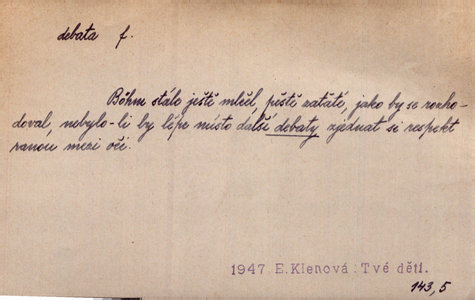 debata f.
Böhm stále ještě mlčel, pěstě zaťaté, jako by se rozho-
doval, nebylo-li by lépe místo další debaty zjednat si respekt
ranou mezi oči.
1947 E. Klenová: Tvé děti.
143,5